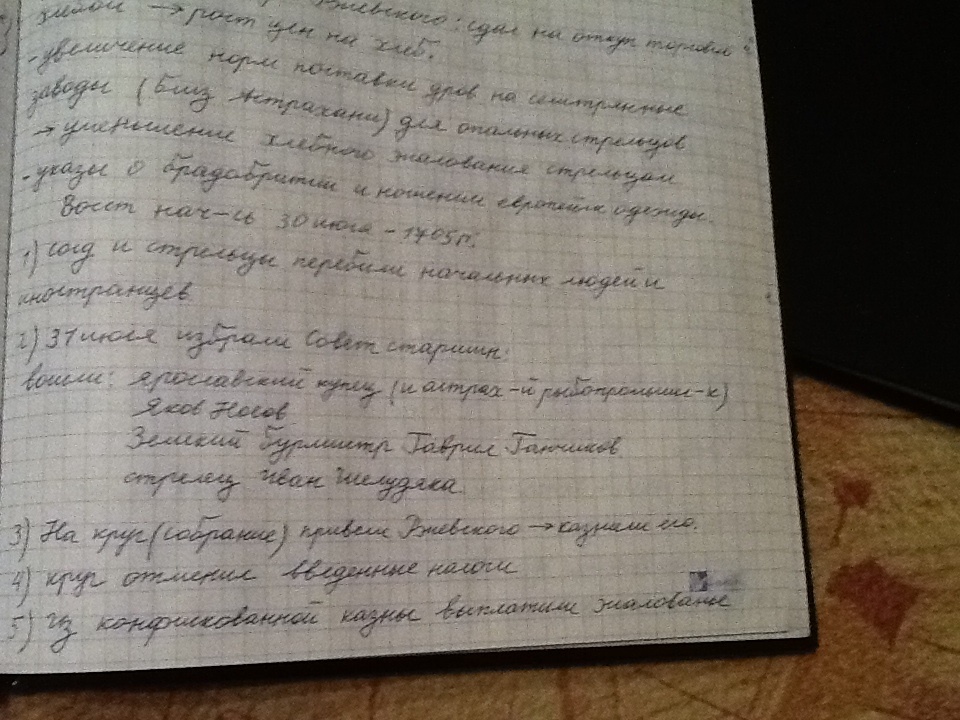 Ржевского: сдал на откуп торговлю
хлебом → рост цен на хлеб.
- увеличение норм поставки дров на селитряные
заводы (близ Астрахани) для опальных стрельцов
→ уменьшение хлебного жалования стрельцам
- указы о брадобритии и ношении европейск одежды.
Восст нач-сь 30 июля - 1705 г.
1) солд и стрельцы перебили начальных людей и
иностранцев.
2) 31 июля избрали Совет старшин:
вошли: ярославский купец (и астрах-й рыбопромышл-к)
Яков Носов
Земский бурмистр Гаврил Ганчиков.
стрелец Иван Шелудяка.
3) На круг (собрание) привели Ржевского → казнили его.
4) круг отменил введенные налоги
5) Из конфискованной казны выплатили жалованье